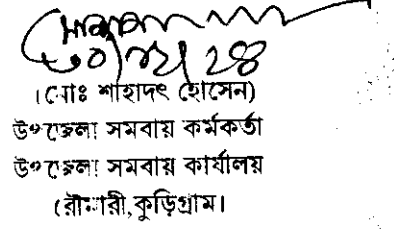 (মোঃ শাহাদৎ হোসেন)
উপজেলা সমবায় কর্মকর্তা
উপজেলা সমবায় কার্যালয়
রৌমারী,কুড়িগ্রাম।